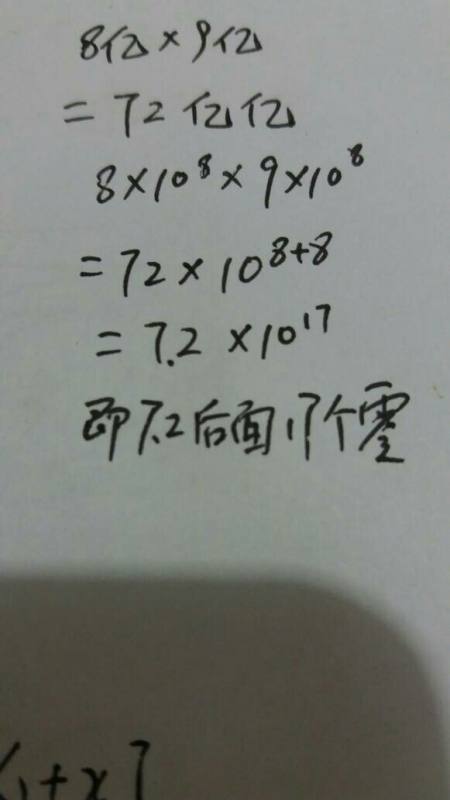 8亿×9亿
=72亿亿
8×10⁸×9×10⁸
=72×10⁸⁺⁸
=7.2×10¹⁷
即7.2后面17个零
+x]